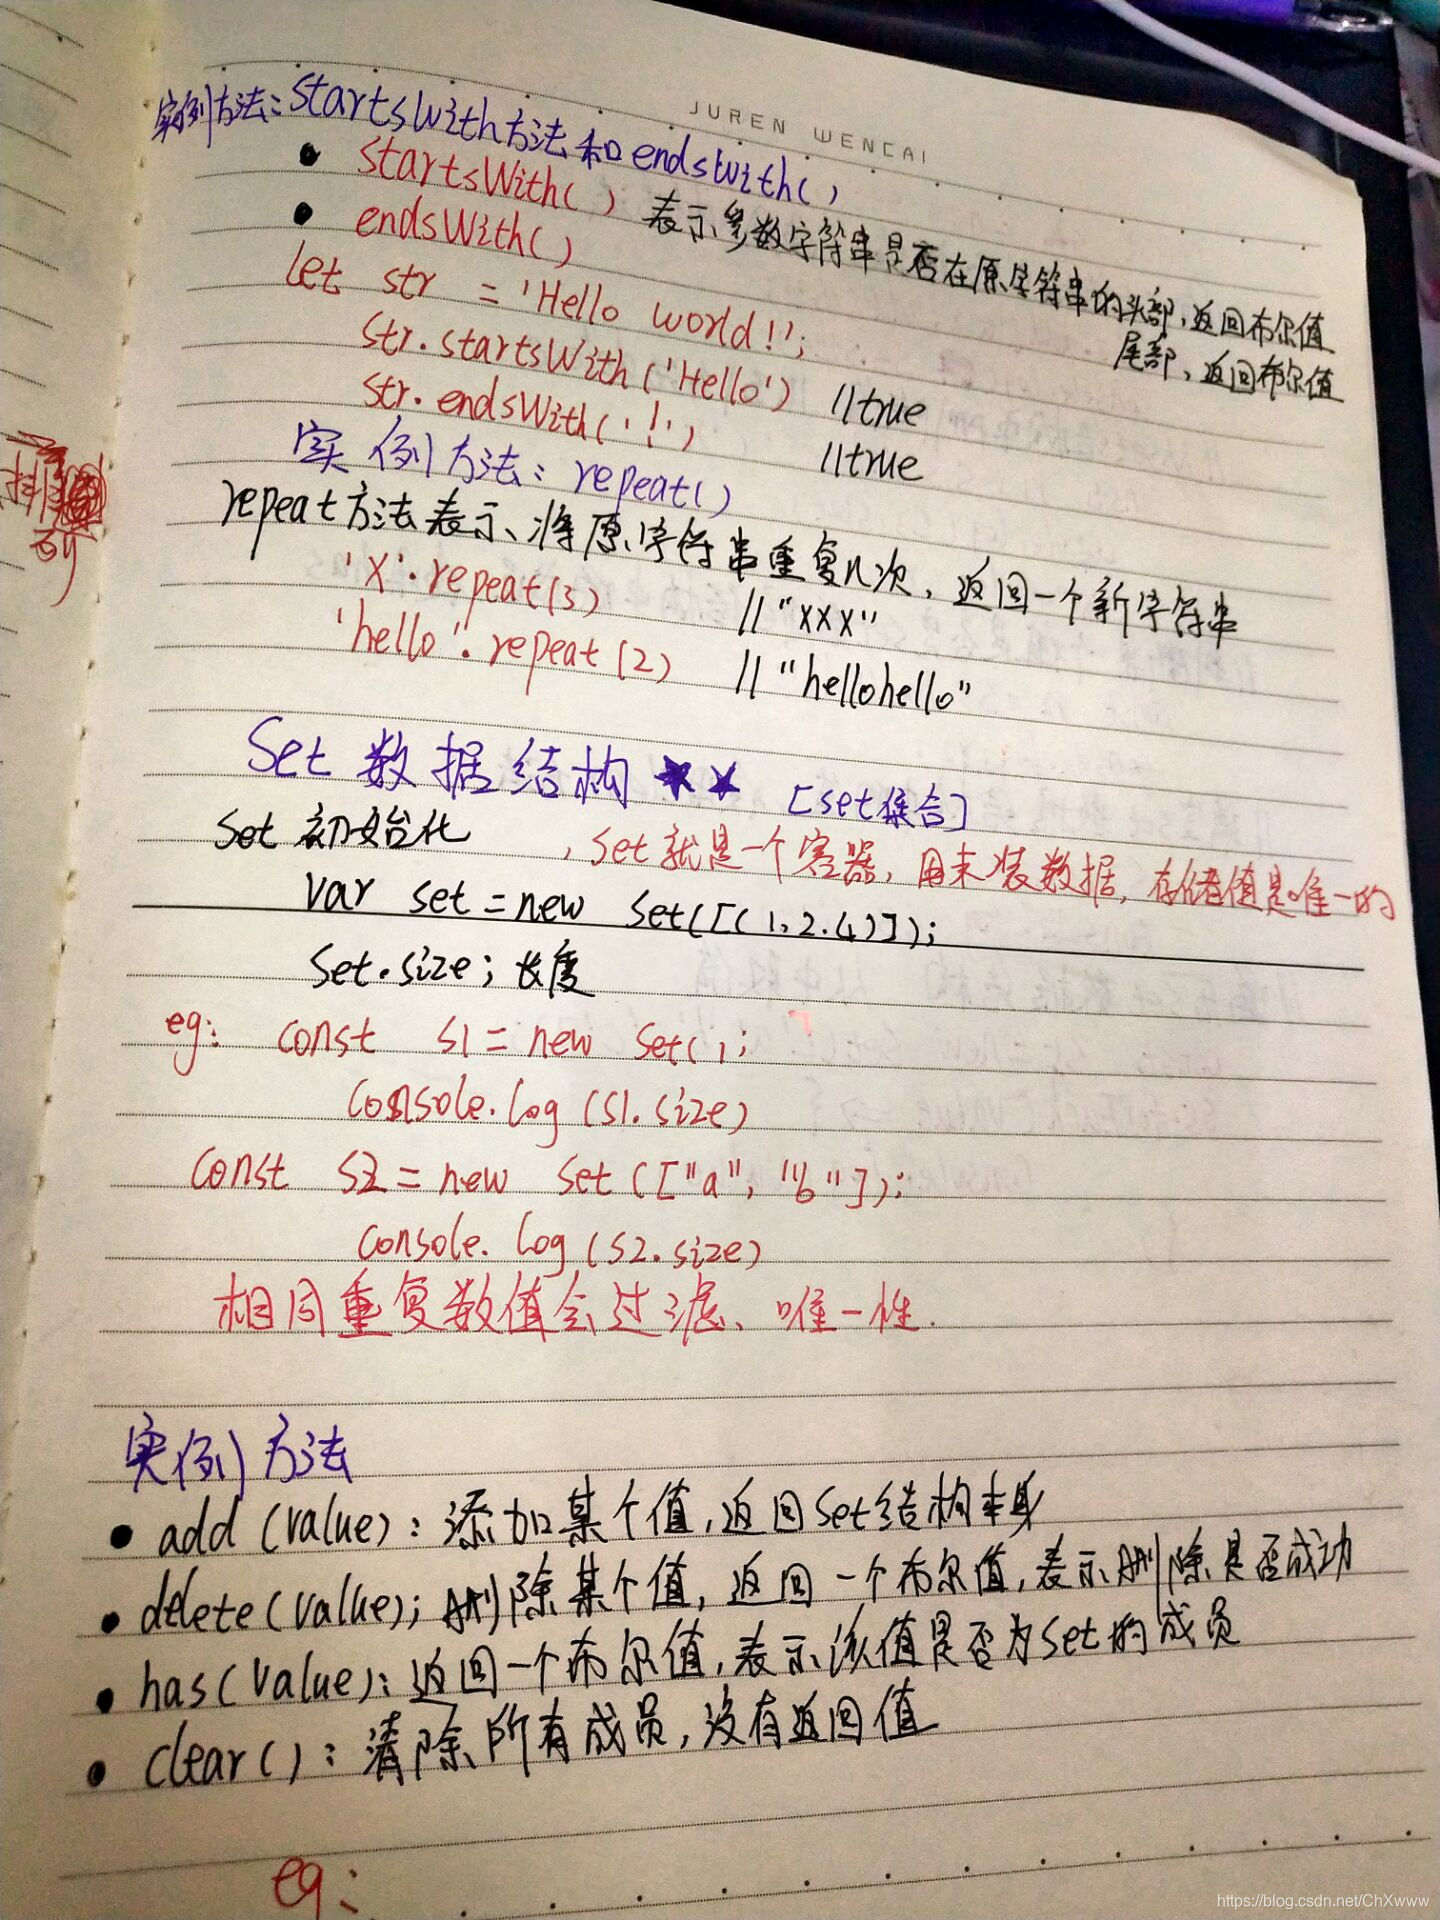 JUREN WENCAI
实例方法:startsWith方法和endsWith()
• startsWith() 表示参数字符串是否在原字符串的头部,返回布尔值
• endsWith() 尾部、返回布尔值
let str = 'Hello world!';
str.startsWith('Hello') //true
str.endsWith('!') //true
实例方法:repeat()
repeat方法表示、将原字符串重复n次,返回一个新字符串
'X'.repeat(3) //"xxx"
'hello'.repeat(2) //"hellohello"
Set 数据结构 ★★ [set集合]
Set 初始化 ,Set就是一个容器,用来装数据,存储值是唯一的
var set = new Set([(1,2.4)]);
Set.size; 长度
eg: const s1 = new Set();
console.log(s1.size)
const s2 = new Set(["a", "b"]);
console.log(s2.size)
相同重复数值会过滤、唯一性.
实例方法
• add(value):添加某个值,返回Set结构本身
• delete(value);删除某个值,返回一个布尔值,表示删除是否成功
• has(value):返回一个布尔值,表示该值是否为Set的成员
• clear():清除所有成员,没有返回值
eg:
https://blog.csdn.net/ChXwww